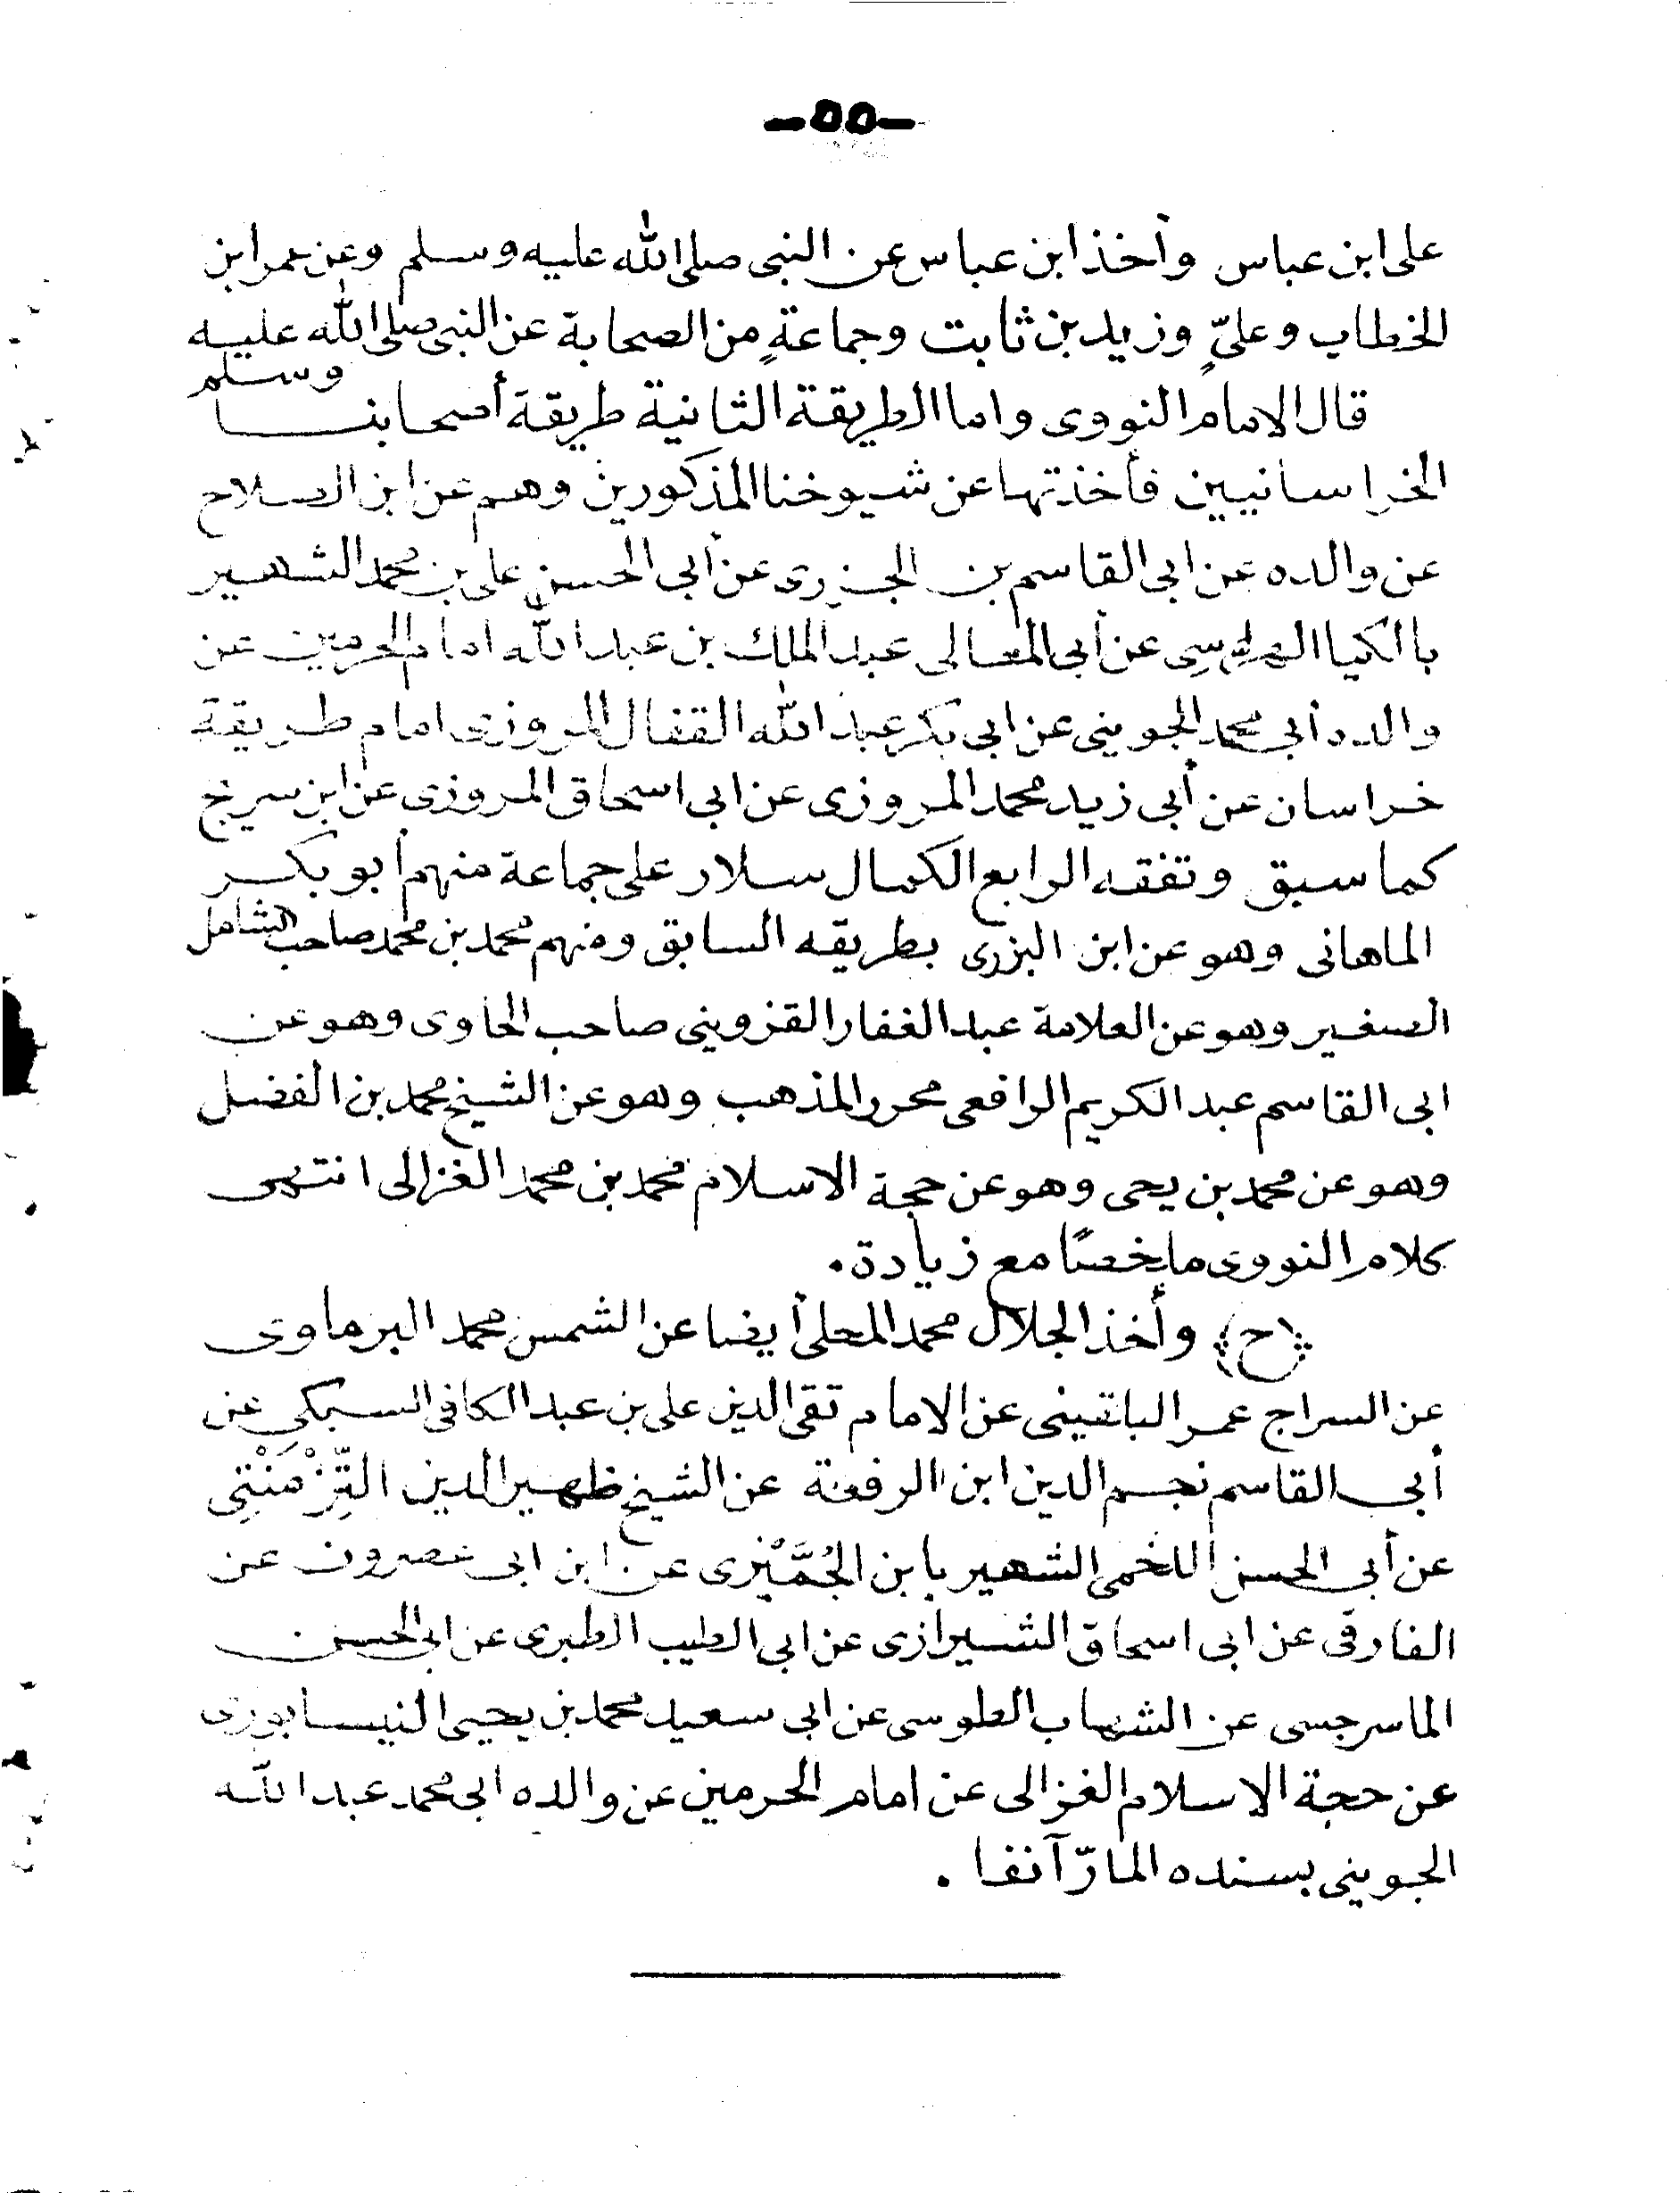 -٥٥-
على ابن عباس وأخذ ابن عباس عن النبى صلى الله عليه وسلم وعن عمر ابن
الخطاب وعلىٍّ وزيد بن ثابت وجماعةٍ من الصحابة عن النبى صلى الله عليه
وسلم
قال الامام النووى واما الطريقة الثانية طريقة أصحابنا
الخراسانيين فأخذتها عن شيوخنا المذكورين وهم عن ابن الصلاح
عن والده عن ابى القاسم بن الجزرى عن أبى الحسن على بن محمد الشهير
بالكيا الهراسى عن أبى المعالى عبد الملك بن عبد الله امام الحرمين عن
والده أبى محمد الجوينى عن ابى بكر عبد الله القفال المروزى امام طريقة
خراسان عن أبى زيد محمد المروزى عن ابى اسحاق المروزى عن ابن سريج
كما سبق وتفقه الرابع الكمال سلار على جماعة منهم أبو بكر
الماهانى وهو عن ابن البزرى بطريقه السابق ومنهم محمد بن محمد صاحب الشامل
الصغير وهو عن العلامة عبد الغفار القزوينى صاحب الحاوى وهو عن
ابى القاسم عبد الكريم الرافعى محرر المذهب وهو عن الشيخ محمد بن الفضل
وهو عن محمد بن يحى وهو عن حجة الاسلام محمد بن محمد الغزالى انتهى
كلام النووى ملخصًا مع زيادة.
(ح) وأخذ الجلال محمد المحلى أيضا عن الشمس محمد البرماوى
عن السراج عمر البلقينى عن الامام تقى الدين على بن عبد الكافى السبكى عن
أبى القاسم نجم الدين ابن الرفعة عن الشيخ ظهير الدين التِّزْمَنْتِى
عن أبى الحسن اللخمى الشهير بابن الجُمَّيْزى عن ابن ابى عصرون عن
الفارقى عن ابى اسحاق الشيرازى عن ابى الطيب الطبرى عن ابى الحسن
الماسرجسى عن الشهاب الطوسى عن ابى سعيد محمد بن يحيى النيسابورى
عن حجة الاسلام الغزالى عن امام الحرمين عن والده ابى محمد عبد الله
الجوينى بسنده المارّ آنفا .